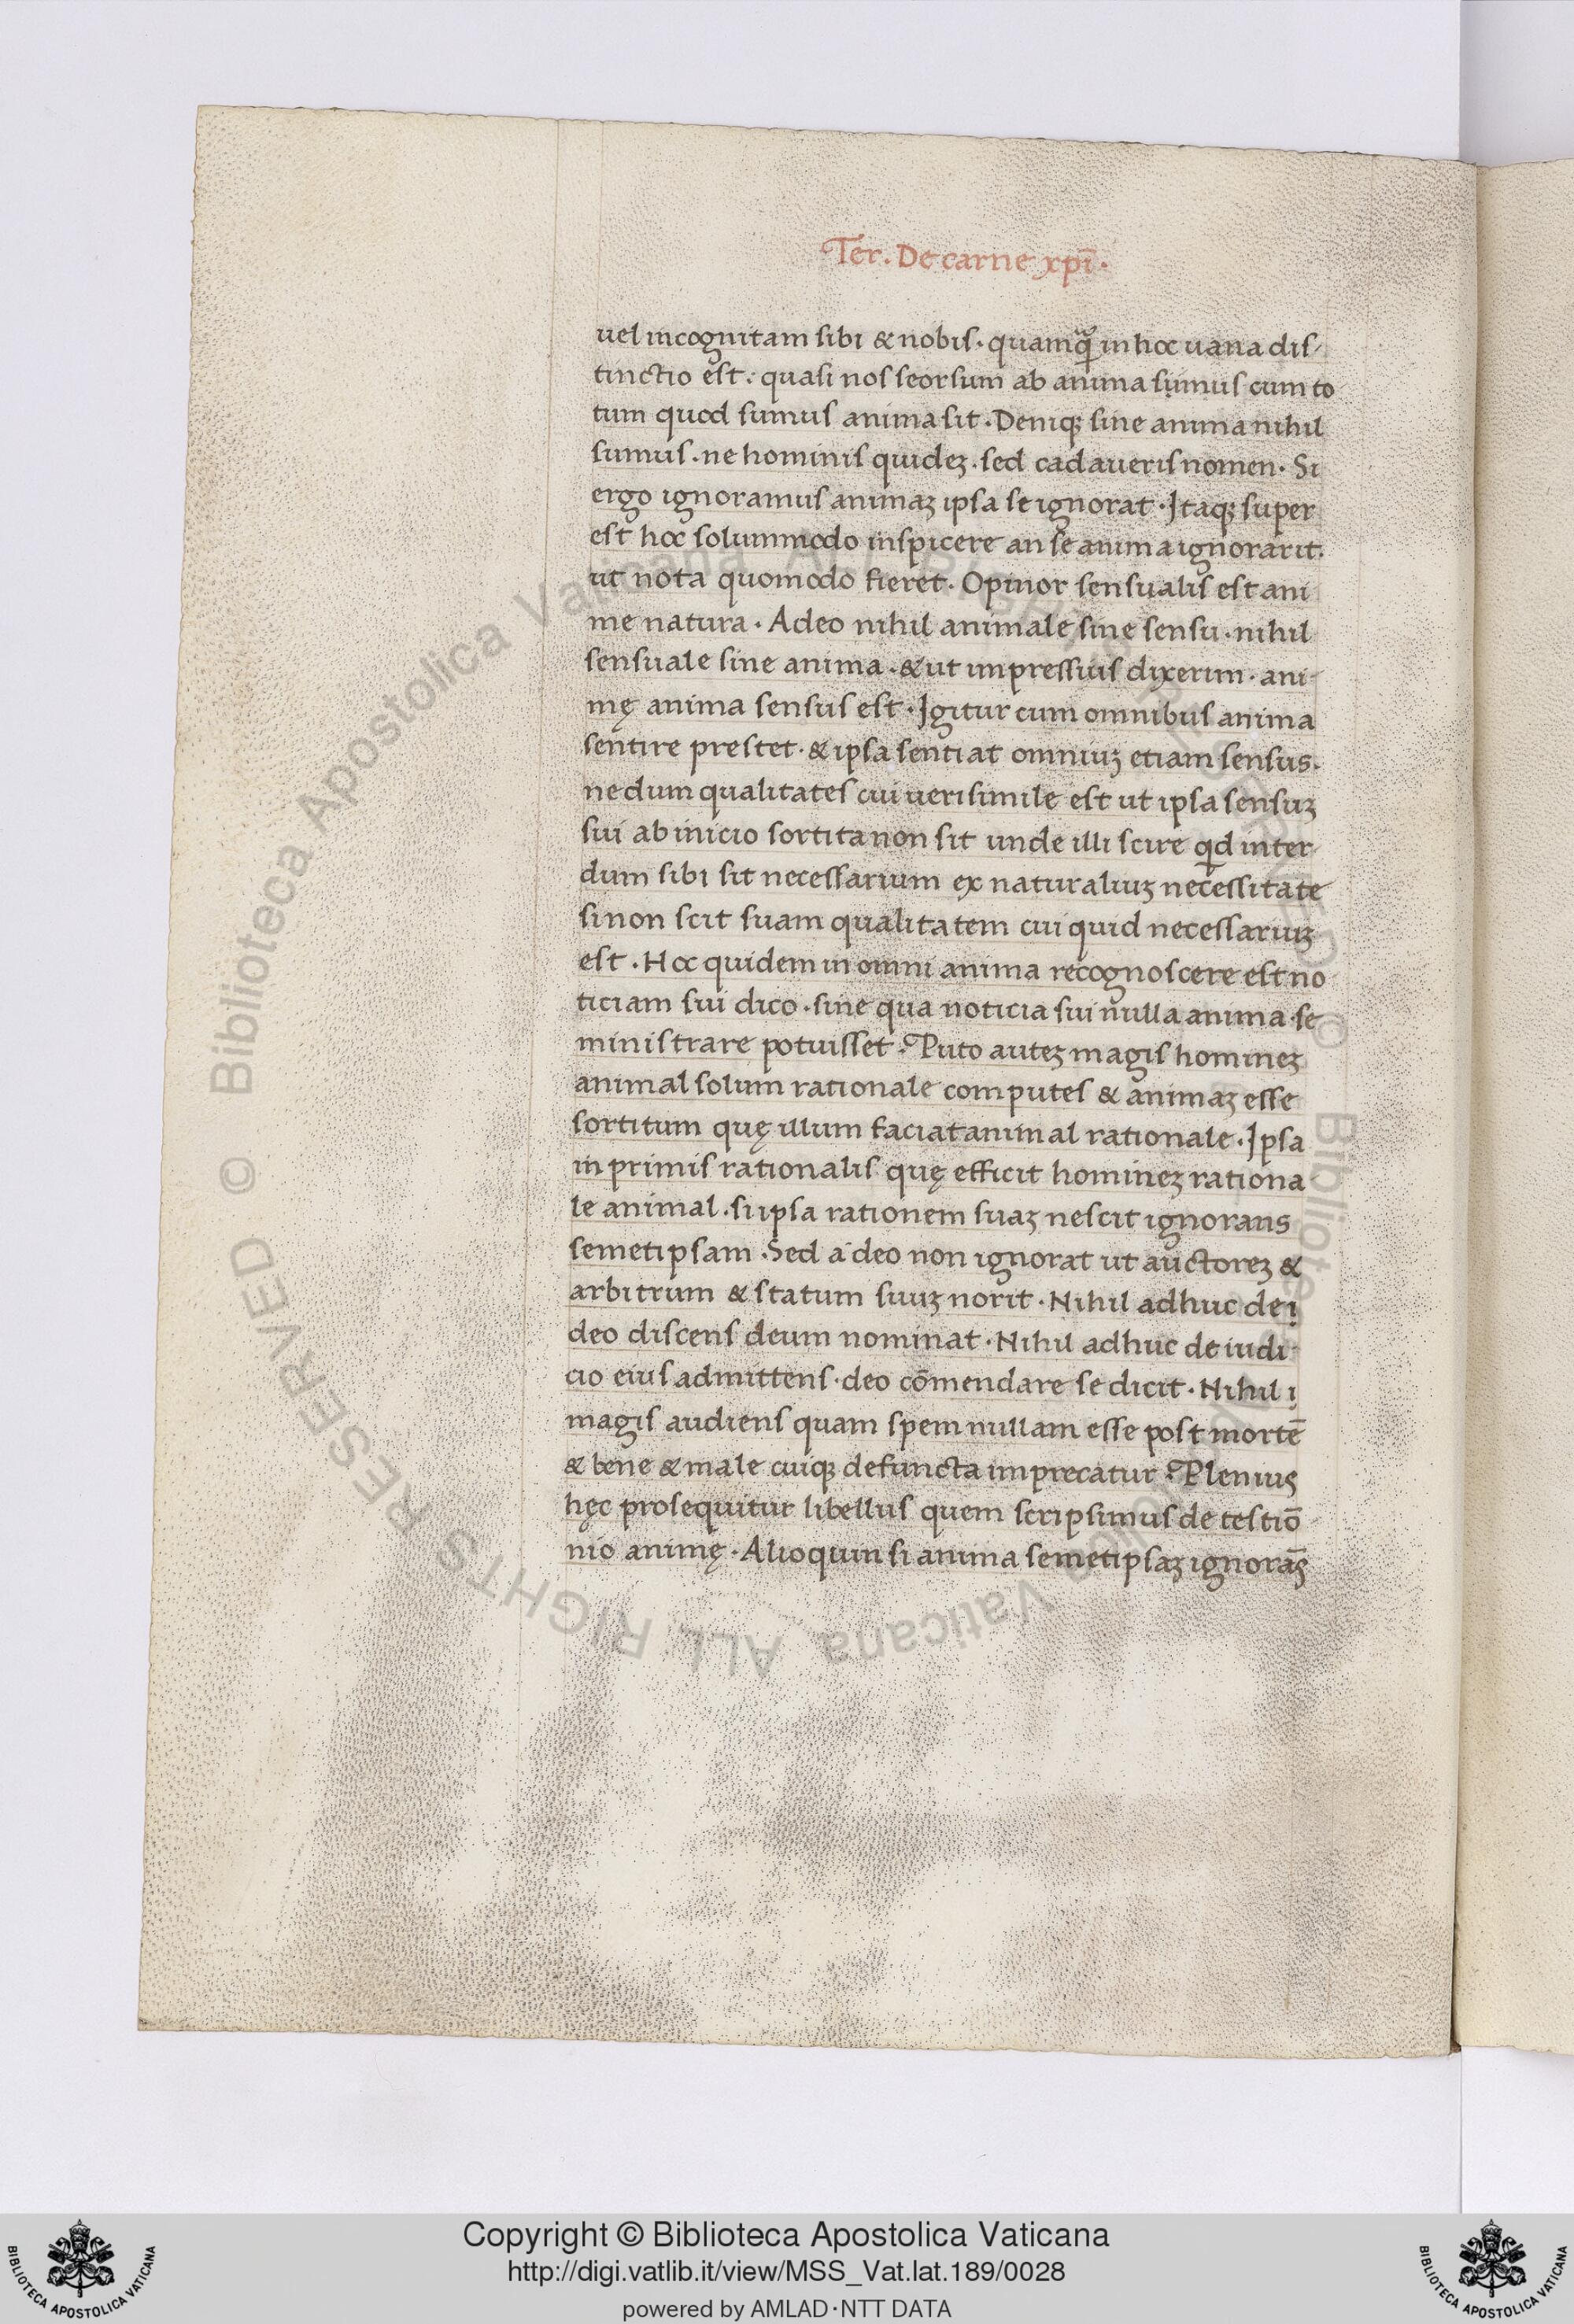 Ter. De carne xp̄i.
uel incognitam sibi & nobis. quamq̃ in hoc uana dis-
tinctio est: quasi nos seorsum ab anima sumus cum to
tum quod sumus anima sit. Deniqꝫ sine anima nihil
sumus. ne hominis quideꝫ. sed cadaueris nomen. Si
ergo ignoramus animaꝫ ipsa se ignorat. Itaqꝫ super
est hoc solummodo inspicere an se anima ignorarit.
ut nota quomodo fieret. Opinor sensualis est ani
me natura. Adeo nihil animale sine sensu. nihil
sensuale sine anima. & ut impressius dixerim. ani-
mę anima sensus est. Igitur cum omnibus anima
sentire prestet. & ipsa sentiat omniuꝫ etiam sensus.
nedum qualitates cui uerisimile est ut ipsa sensuꝫ
sui ab inicio sortita non sit unde illi scire qd inter-
dum sibi sit necessarium ex naturaliuꝫ necessitate
si non scit suam qualitatem cui quid necessariuꝫ
est. Hoc quidem in omni anima recognoscere est no
ticiam sui dico. sine qua noticia sui nulla anima se
ministrare potuisset. Puto auteꝫ magis homineꝫ
animal solum rationale computes & animaꝫ esse
sortitum quę illum faciat animal rationale. Ipsa
in primis rationalis quę efficit homineꝫ rationa
le animal. si ipsa rationem suaꝫ nescit ignorans
semetipsam. Sed adeo non ignorat ut auctoreꝫ &
arbitrum & statum suuꝫ norit. Nihil adhuc de ị
deo discens deum nominat. Nihil adhuc de iudi-
cio eius admittens. deo cōmendare se dicit. Nihil ị
magis audiens quam spem nullam esse post mortē
& bene & male cuiqꝫ defuncta imprecatur. Plenius
hęc prosequitur libellus quem scripsimus de testiō
nio animę. Alioquin si anima semetipsaꝫ ignorās
Copyright © Biblioteca Apostolica Vaticana
http://digi.vatlib.it/view/MSS_Vat.lat.189/0028
powered by AMLAD·NTT DATA
BIBLIOTECA APOSTOLICA VATICANA
BIBLIOTECA APOSTOLICA VATICANA
© Biblioteca Apostolica Vaticana ALL RIGHTS RESERVED © Biblioteca Apostolica Vaticana ALL RIGHTS RESERVED